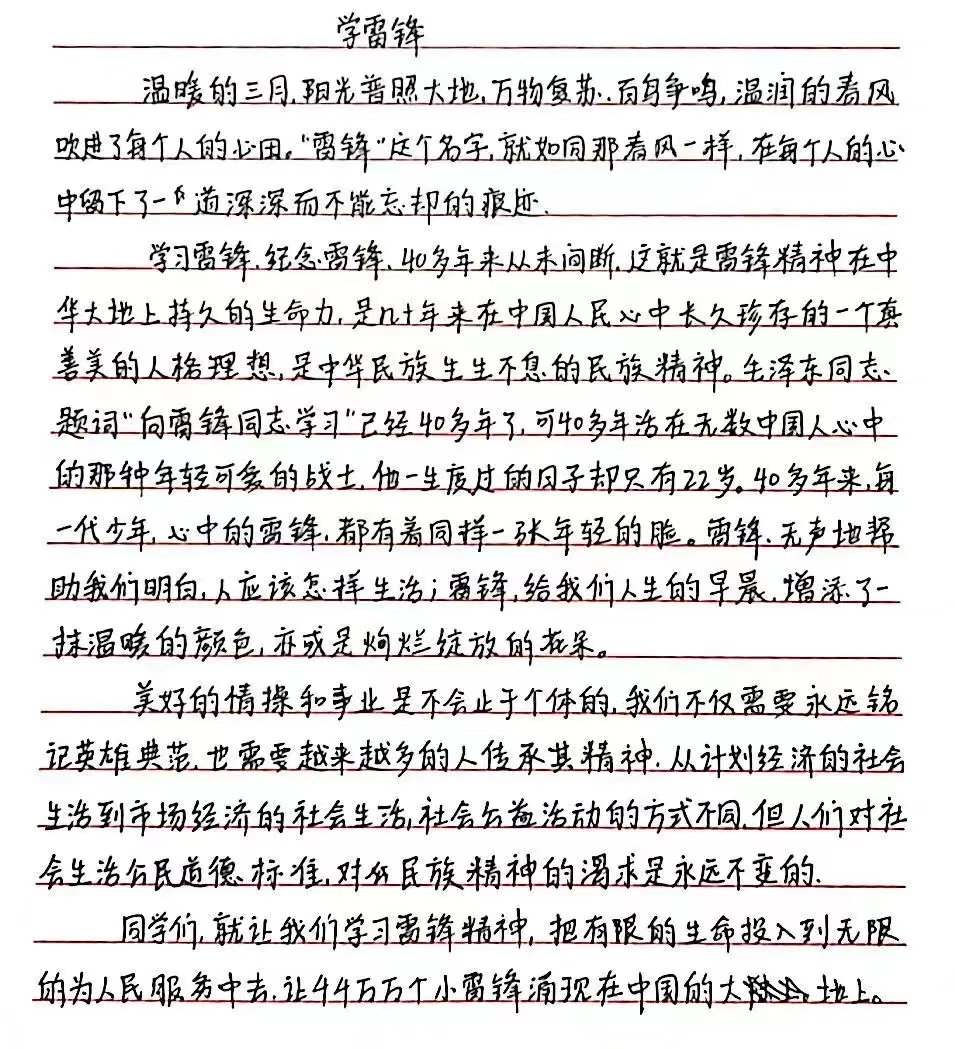 学雷锋
温暖的三月,阳光普照大地,万物复苏.百鸟争鸣,温润的春风
吹进了每个人的心田。“雷锋”这个名字,就如同那春风一样,在每个人的心
中留下了一道深深而不能忘却的痕迹.
学习雷锋.纪念雷锋,40多年来从未间断,这就是雷锋精神在中
华大地上持久的生命力,是几十年来在中国人民心中长久珍存的一个真
善美的人格理想,是中华民族生生不息的民族精神。毛泽东同志、
题词“向雷锋同志学习”已经40多年了,可40多年活在无数中国人心中
的那种年轻可爱的战士,他一生度过的日子却只有22岁。40多年来,每
一代少年,心中的雷锋,都有着同样一张年轻的脸。雷锋、无声地帮
助我们明白,人应该怎样生活;雷锋,给我们人生的早晨,增添了一
抹温暖的颜色,亦或是绚烂绽放的花朵。
美好的情操和事业是不会止于个体的,我们不仅需要永远铭
记英雄典范,也需要越来越多的人传承其精神.从计划经济的社会
生活到市场经济的社会生活,社会公益活动的方式不同.但人们对社
会生活公民道德标准,对于民族精神的渴求是永远不变的.
同学们,就让我们学习雷锋精神,把有限的生命投入到无限
的为人民服务中去,让44万万个小雷锋涌现在中国的大地上。